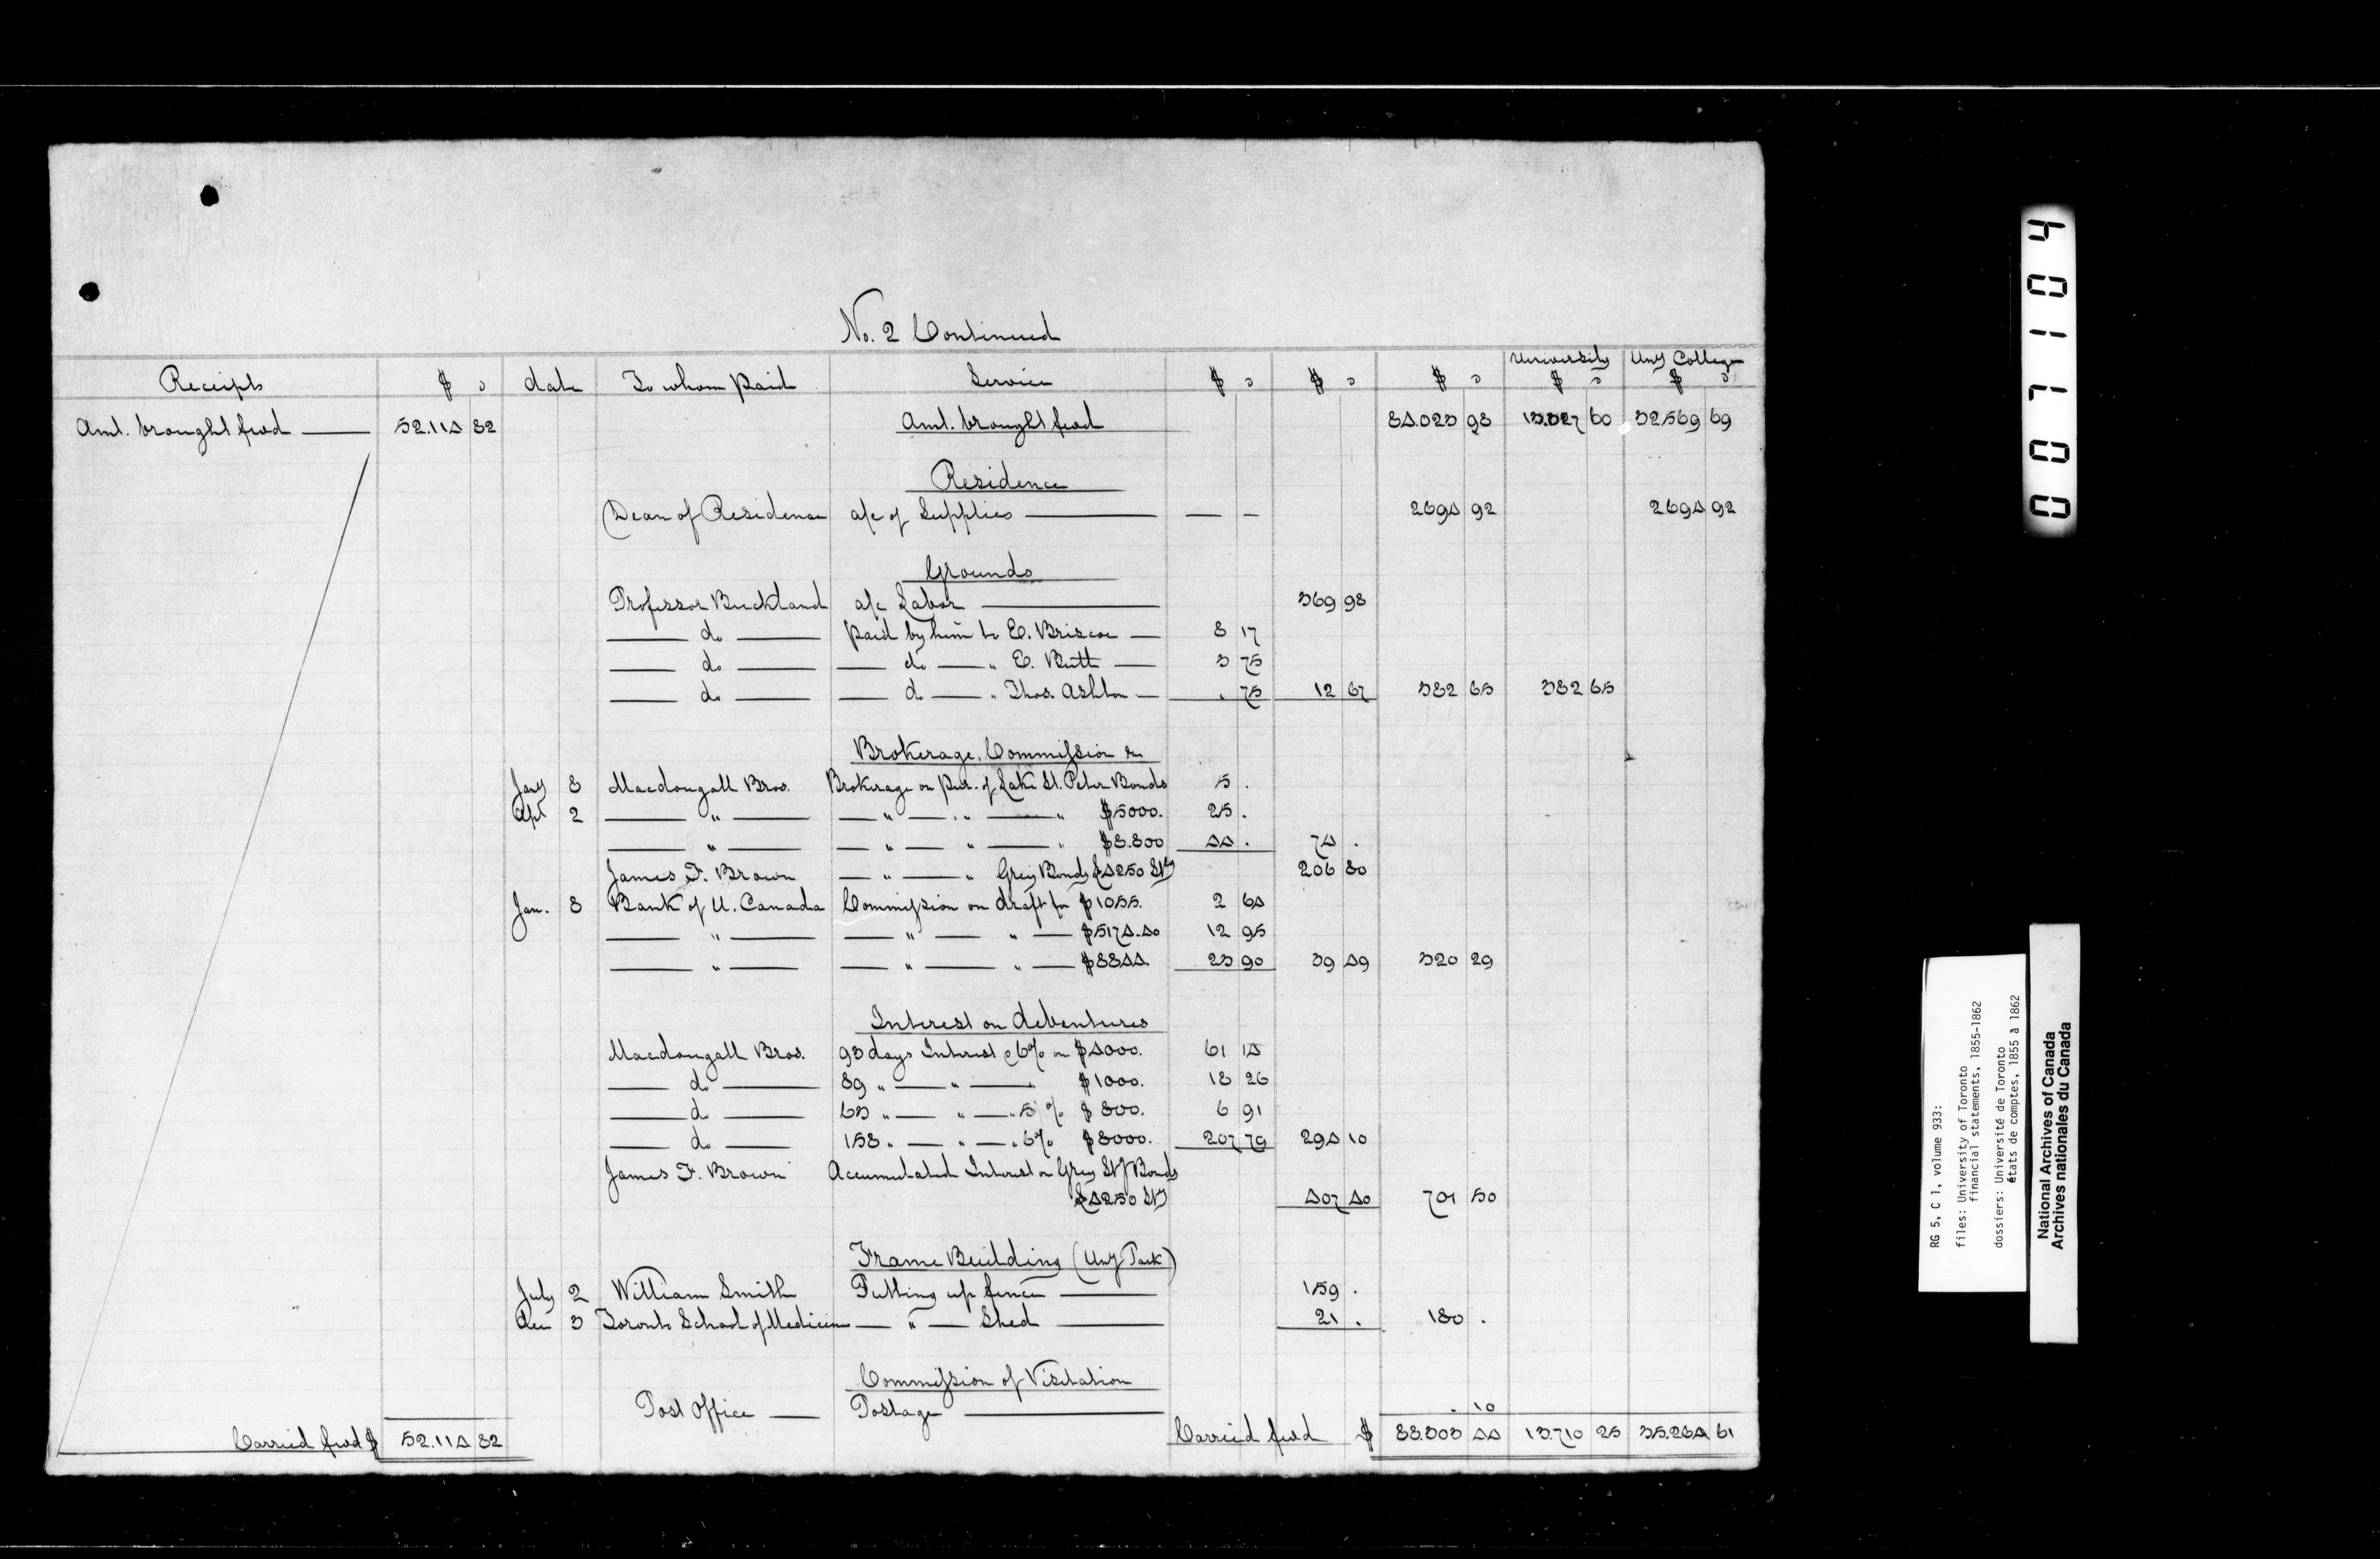 No. 2 Continued
Receipts $ c date To whom paid Service $ c $ c $ c University $ c Uny College $ c
Amt. brought fwd 52.114 82 Amt. brought fwd 84.023 98 13.327 60 32,569 69
Residence
Dean of Residence a/c of Supplies — — 2694 92 2694 92
Grounds
Professor Buckland a/c Labor 369 98
— do — paid by him to E. Briscoe — 8 17
— do — — do — " E. Butt — 3 75
— do — — do — " Thos. Ashton — . 75 12 67 382 65 382 65
Brokerage, Commission &c
Jany 8 Macdougall Bros. Brokerage on pur. of Lake St. Peter Bonds 5 .
Apl 2 — " — — " — " — " $5000. 25 .
— " — — " — " — " $8.800 44 . 74 .
James F. Brown — " — " Grey Bonds £4250 Stg 206 80
Jan. 8 Bank of U. Canada Commission on draft for $1055. 2 64
— " — — " — " — $5174.40 12 95
— " — — " — " — $8844. 23 90 39 49 320 29
Interest on debentures
Macdougall Bros. 93 days Interest @ 6% on $4000. 61 14
— do — 89 " — " — " $1000. 18 26
— do — 63 " — " — " 5 % $800. 6 91
— do — 158 " — " — " 6% $8000. 207 79 294 10
James F. Brown Accumulated Interest on Grey Stg Bonds
£4250 Stg 407 40 701 50
Frame Building (Uny Park)
July 2 William Smith Putting up fence 159 .
Dec 3 Toronto School of Medicine — " — Shed 21 . 180 .
Commission of Visitation
Post Office — Postage . 10
Carried fwd $ 52.114 82 Carried fwd $ 88.303 44 13.710 25 35.264 61
007104
RG 5, C 1, volume 933:
files: University of Toronto
financial statements, 1855-1862
dossiers: Université de Toronto
états de comptes, 1855 à 1862
National Archives of Canada
Archives nationales du Canada